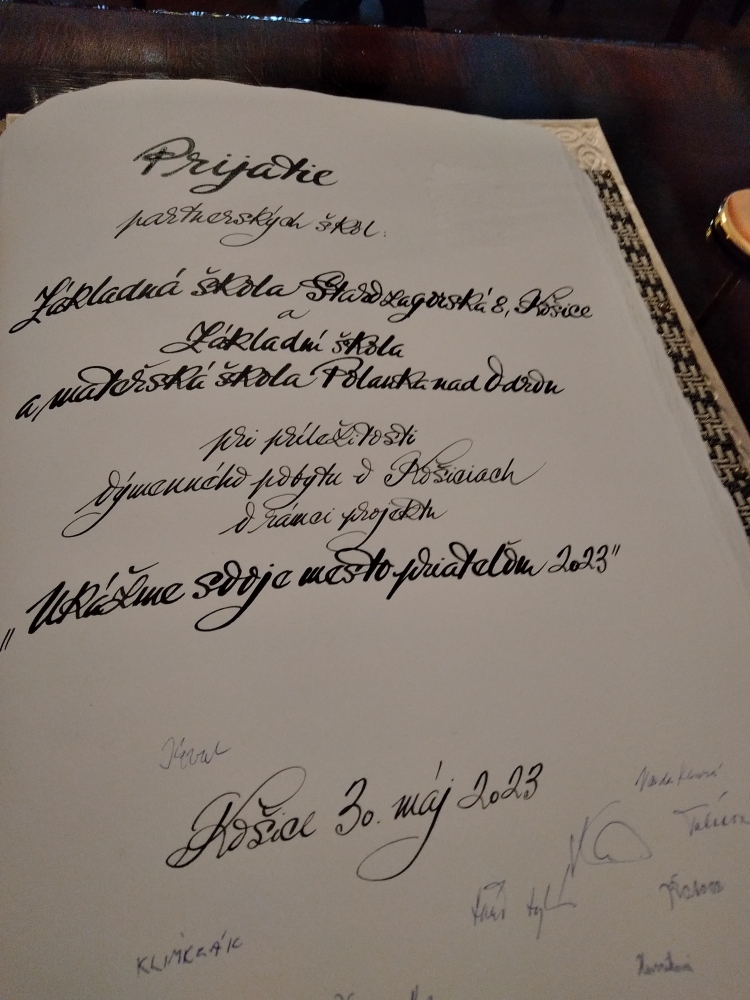 Prijatie
partnerských škôl:
Základná škola Starozagorská 8, Košice
a
Základní škola
a mateřská škola Polanka nad Odrou
pri príležitosti
výmenného pobytu v Košiciach
v rámci projektu
„Ukážme svoje mesto priateľom 2023"
Košice 30. máj 2023